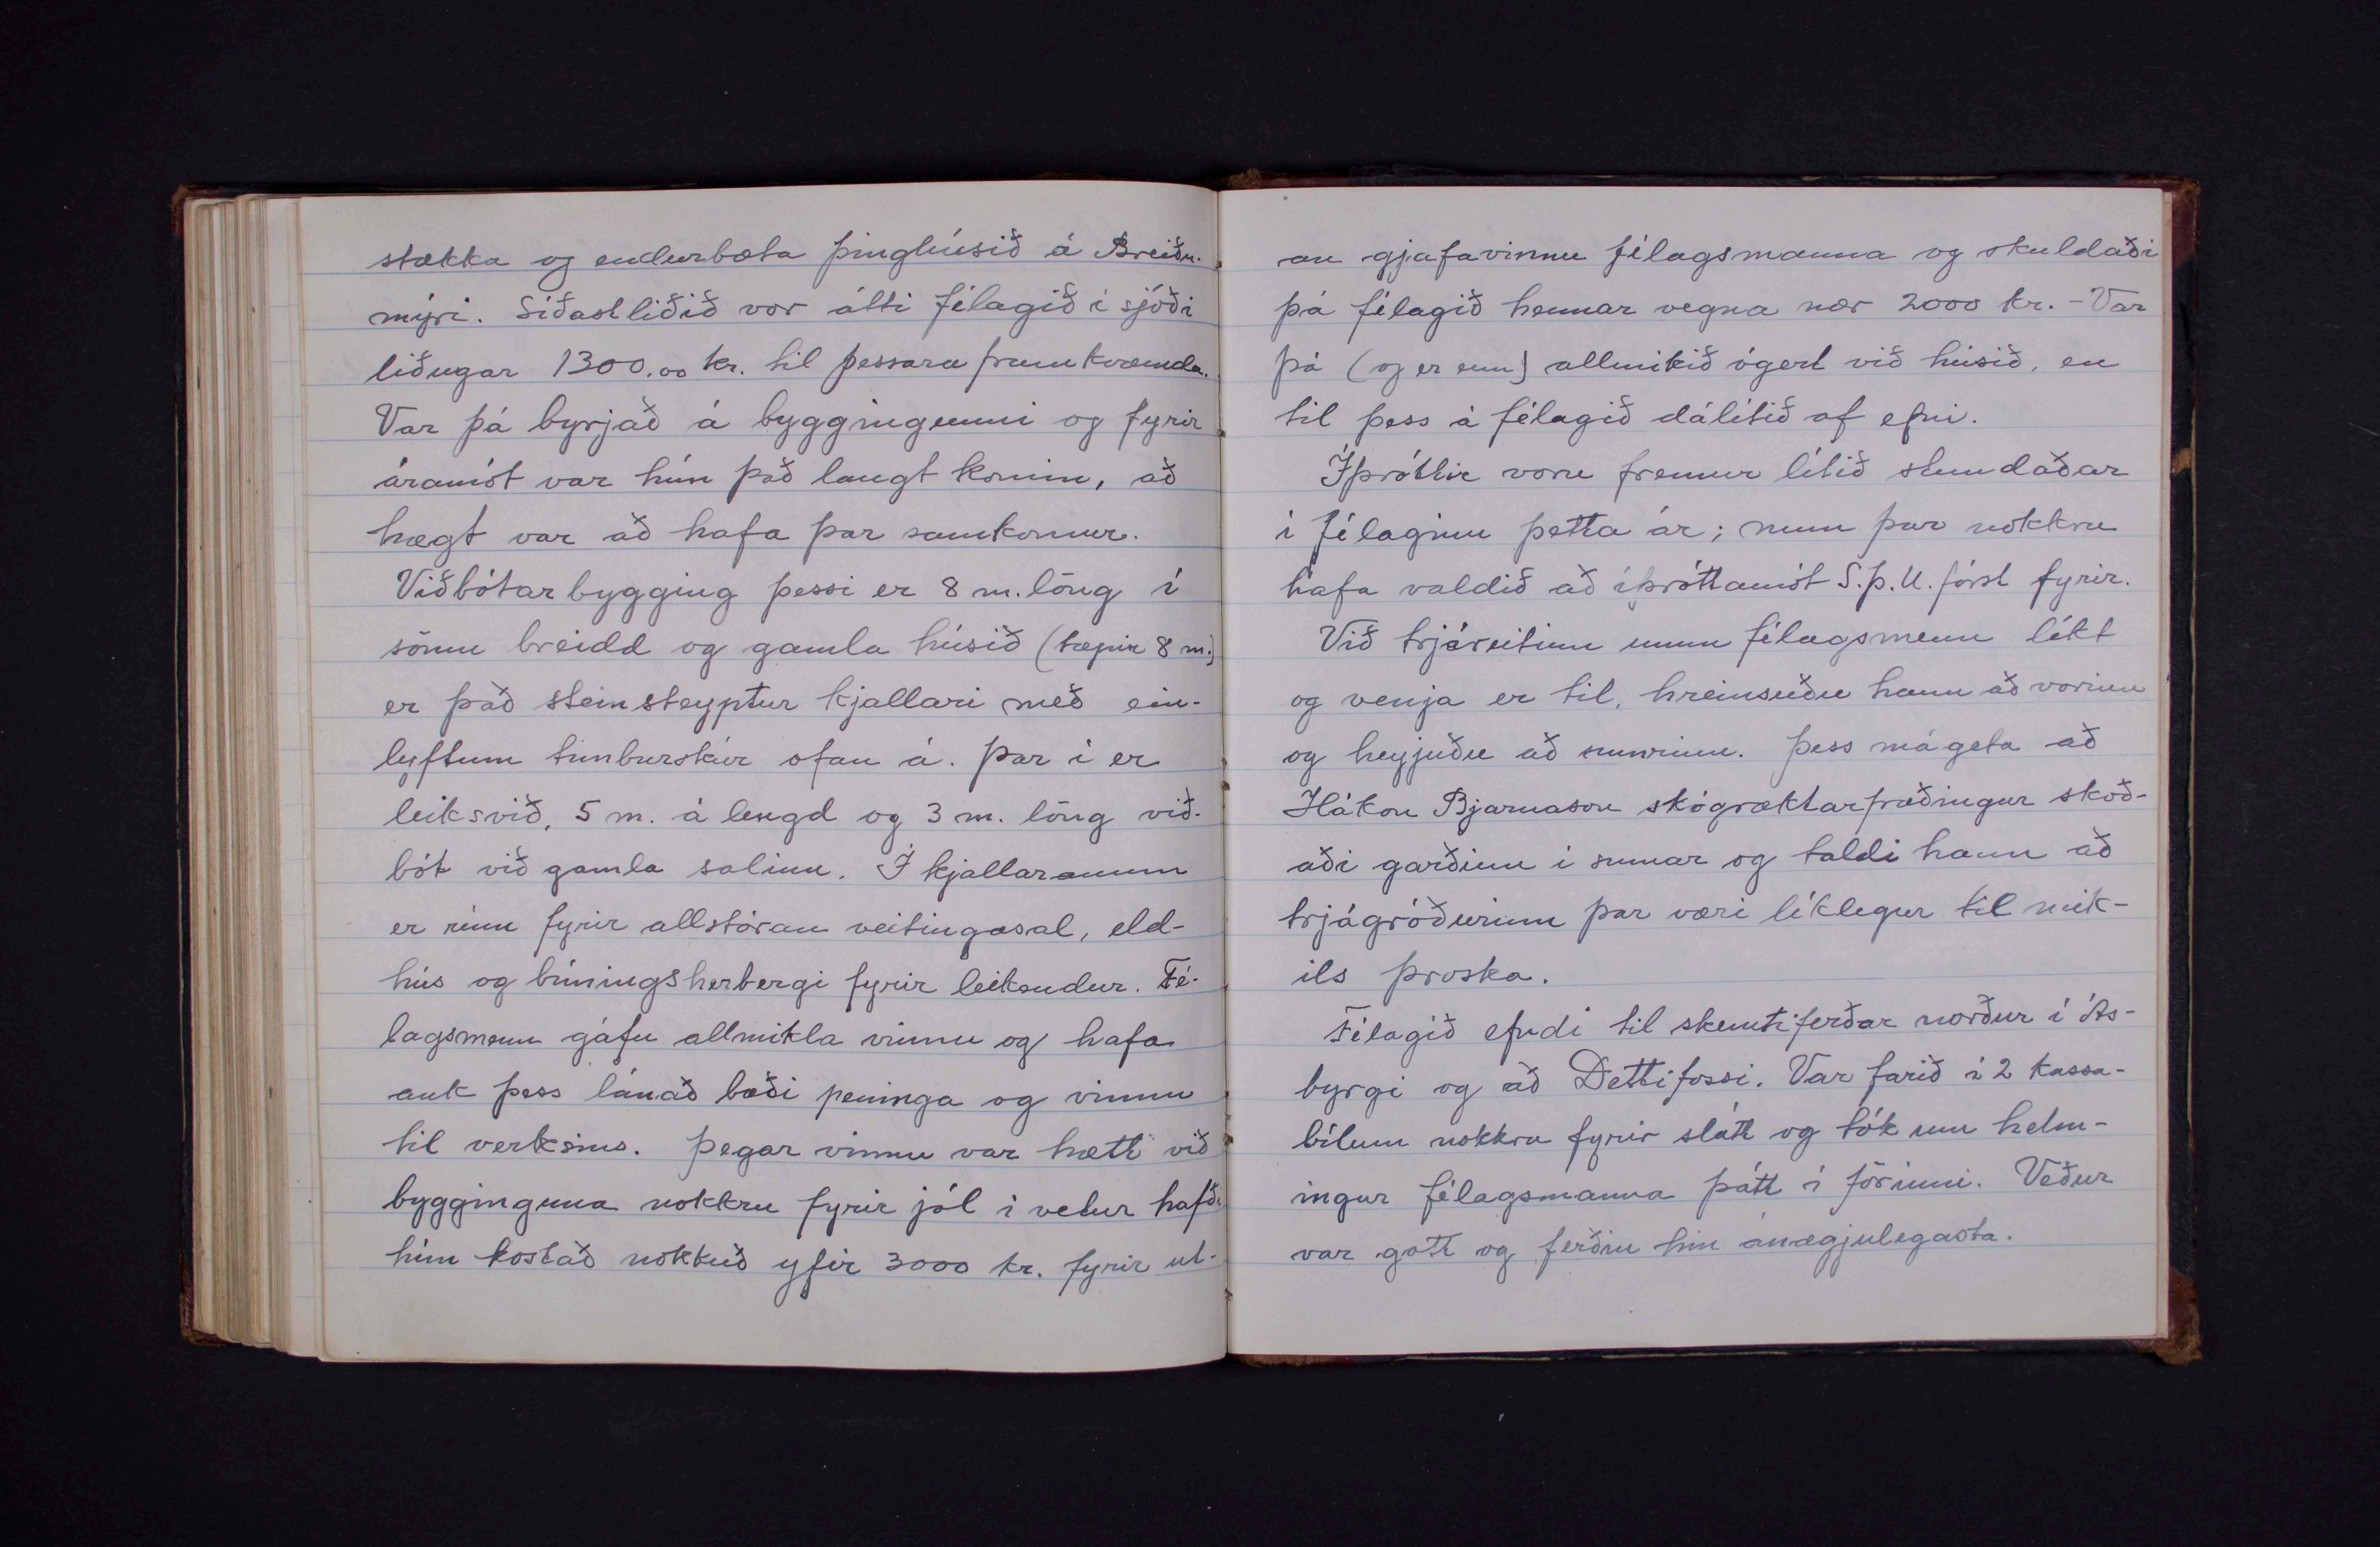 stækka og endurbæta þinghúsið á Breiðu-
mýri. Síðastliðið vor átti félagið í sjóði
liðugar 1300.00 kr. til þessara framkvæmda.
Var þá byrjað á byggingunni og fyrir
áramót var hún það langt komin, að
hægt var að hafa þar samkomur.
Viðbótarbygging þessi er 8 m. löng í
sömu breidd og gamla húsið (tæpir 8 m.)
er það steinsteyptur kjallari með ein-
lyftum timburskúr ofan á. Þar í er
leiksvið, 5 m. á lengd og 3 m. löng við-
bót við gamla salinn. Í kjallaranum
er rúm fyrir allstóran veitingasal, eld-
hús og búningsherbergi fyrir leikendur. Fé-
lagsmenn gáfu allmikla vinnu og hafa
auk þess lánað bæði peninga og vinnu
til verksins. Þegar vinnu var hætt við
bygginguna nokkru fyrir jól í vetur hafði
hún kostað nokkuð yfir 3000 kr. fyrir ut-
an gjafavinnu félagsmanna og skuldaði
þá félagið hennar vegna nær 2000 kr. - Var
þá (og er enn) allmikið ógert við húsið, en
til þess á félagið dálítið af efni.
Íþróttir voru fremur lítið stundaðar
í félaginu þetta ár; mun þar nokkru
hafa valdið að íþróttamót S.Þ.U. fórst fyrir.
Við trjáreitinn unnu félagsmenn líkt
og venja er til, hreinsuðu hann að vorinu
og heyjuðu að sumrinu. Þess má geta að
Hákon Bjarnason skógræktarfræðingur skoð-
aði garðinn í sumar og taldi hann að
trjágróðurinn þar væri líklegur til mik-
ils þroska.
Félagið efndi til skemtiferðar norður í Ás-
byrgi og að Dettifossi. Var farið í 2 kassa-
bílum nokkru fyrir slátt og tók um helm-
ingur félagsmanna þátt í förinni. Veður
var gott og ferðin hin ánægjulegasta.